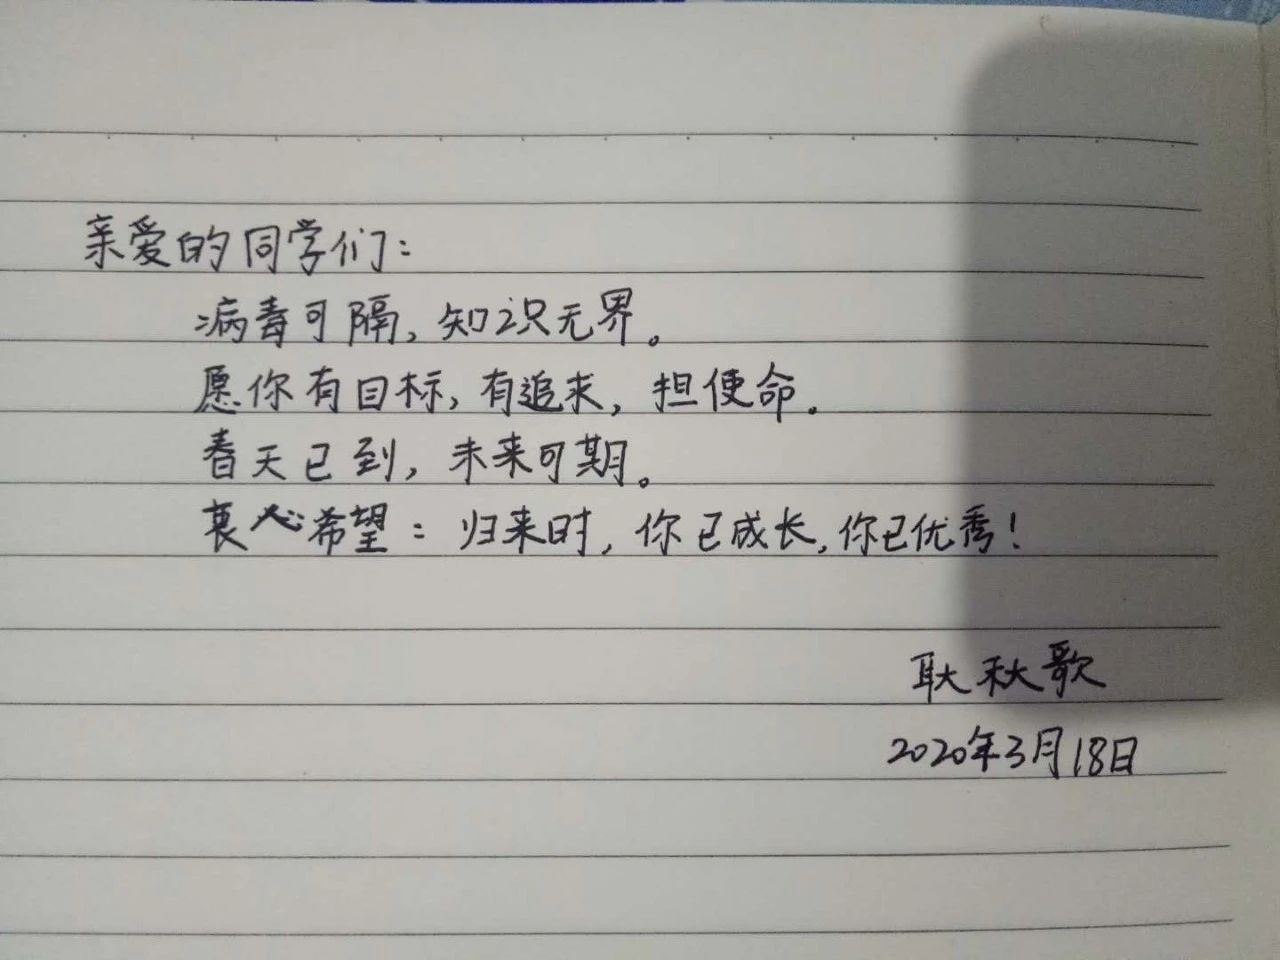 亲爱的同学们:
病毒可隔,知识无界。
愿你有目标,有追求,担使命.
春天已到,未来可期。
衷心希望:归来时,你已成长,你已优秀!
耿秋歌
2020年3月18日